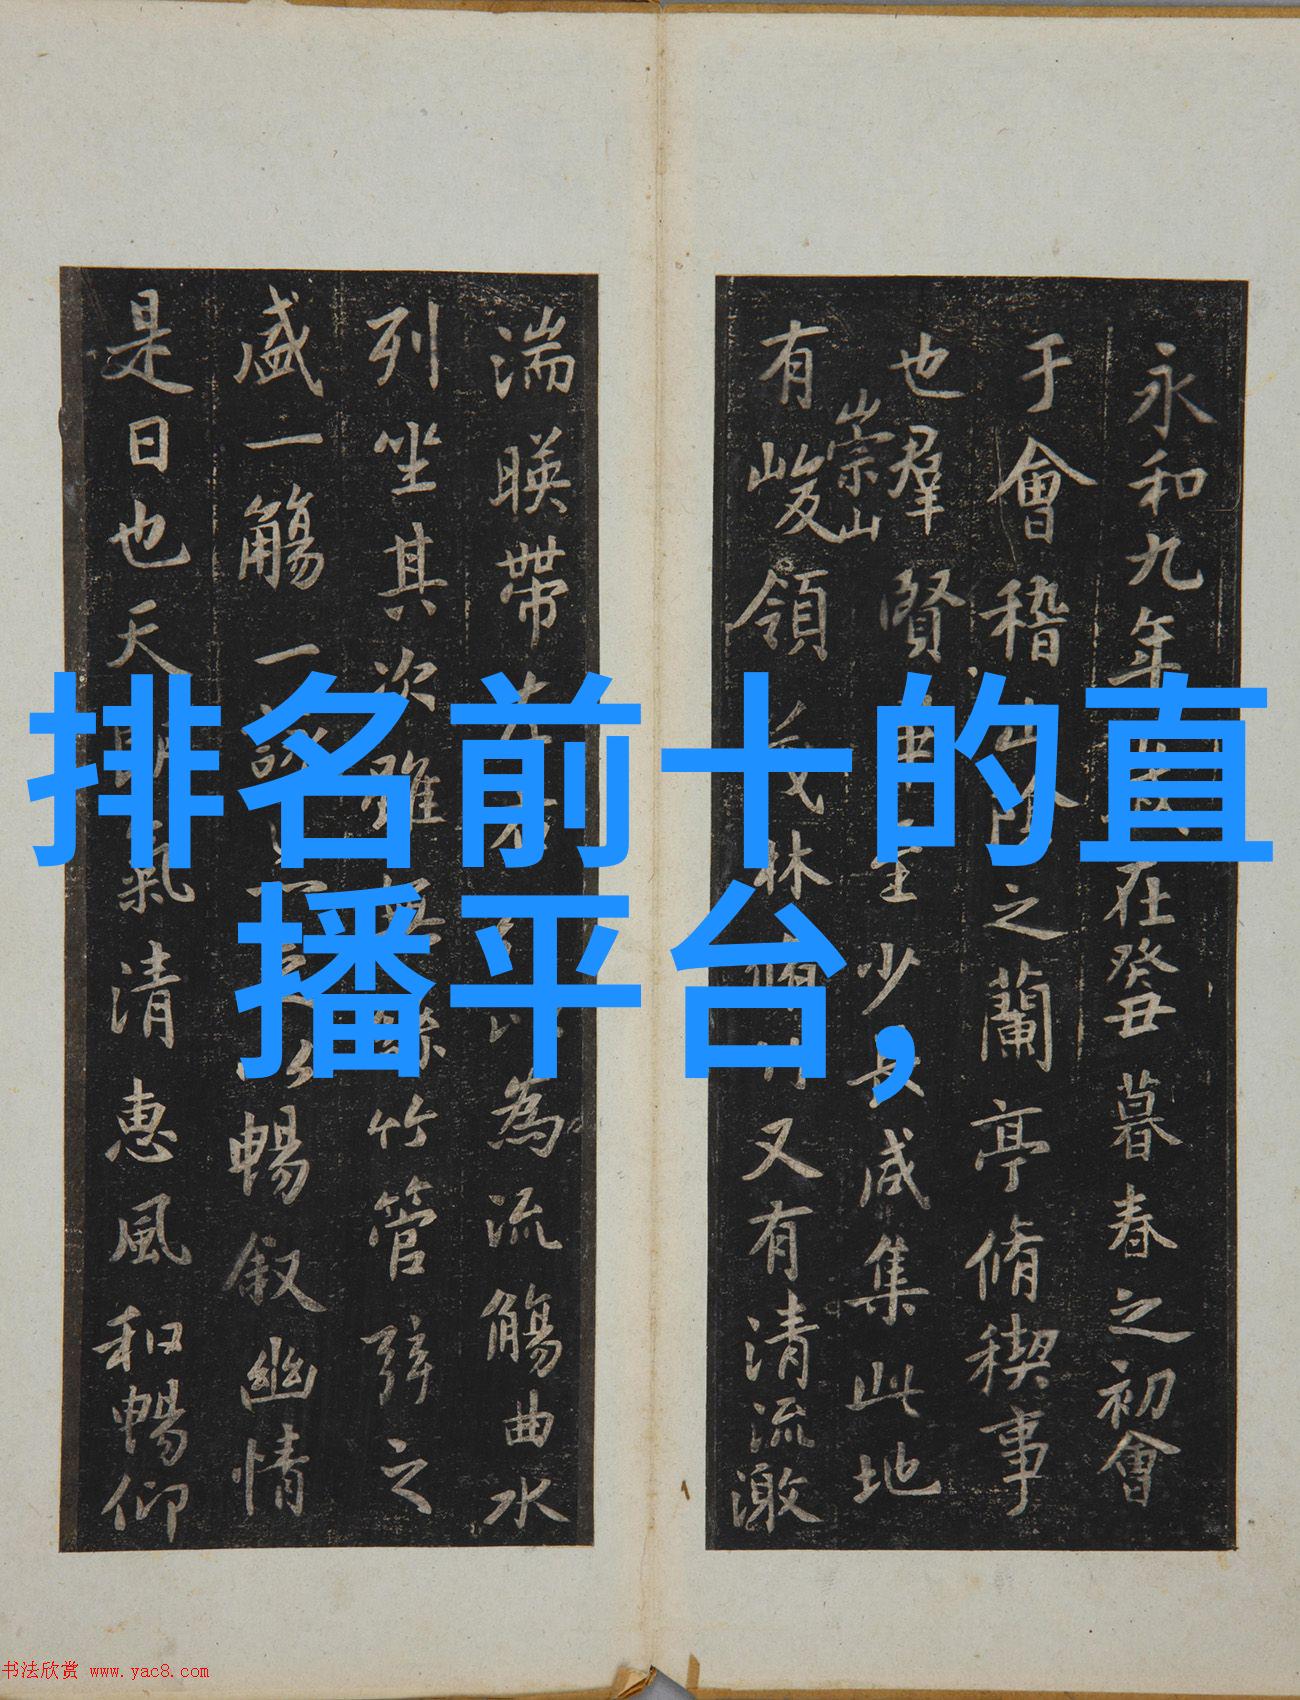 排名前十的直
播平台,
永和九年在癸丑暮春之初會
于會稽山陰之蘭亭脩禊事
也羣賢畢至少長咸集此地
崇山
有峻領茂林脩竹又有清流激
湍暎帶左以為流觴曲水
列坐其次雖無絲竹管弦之
盛一觴一詠以暢叙幽情
是日也天朗氣清惠風和暢仰
书法欣赏 www.yac8.com